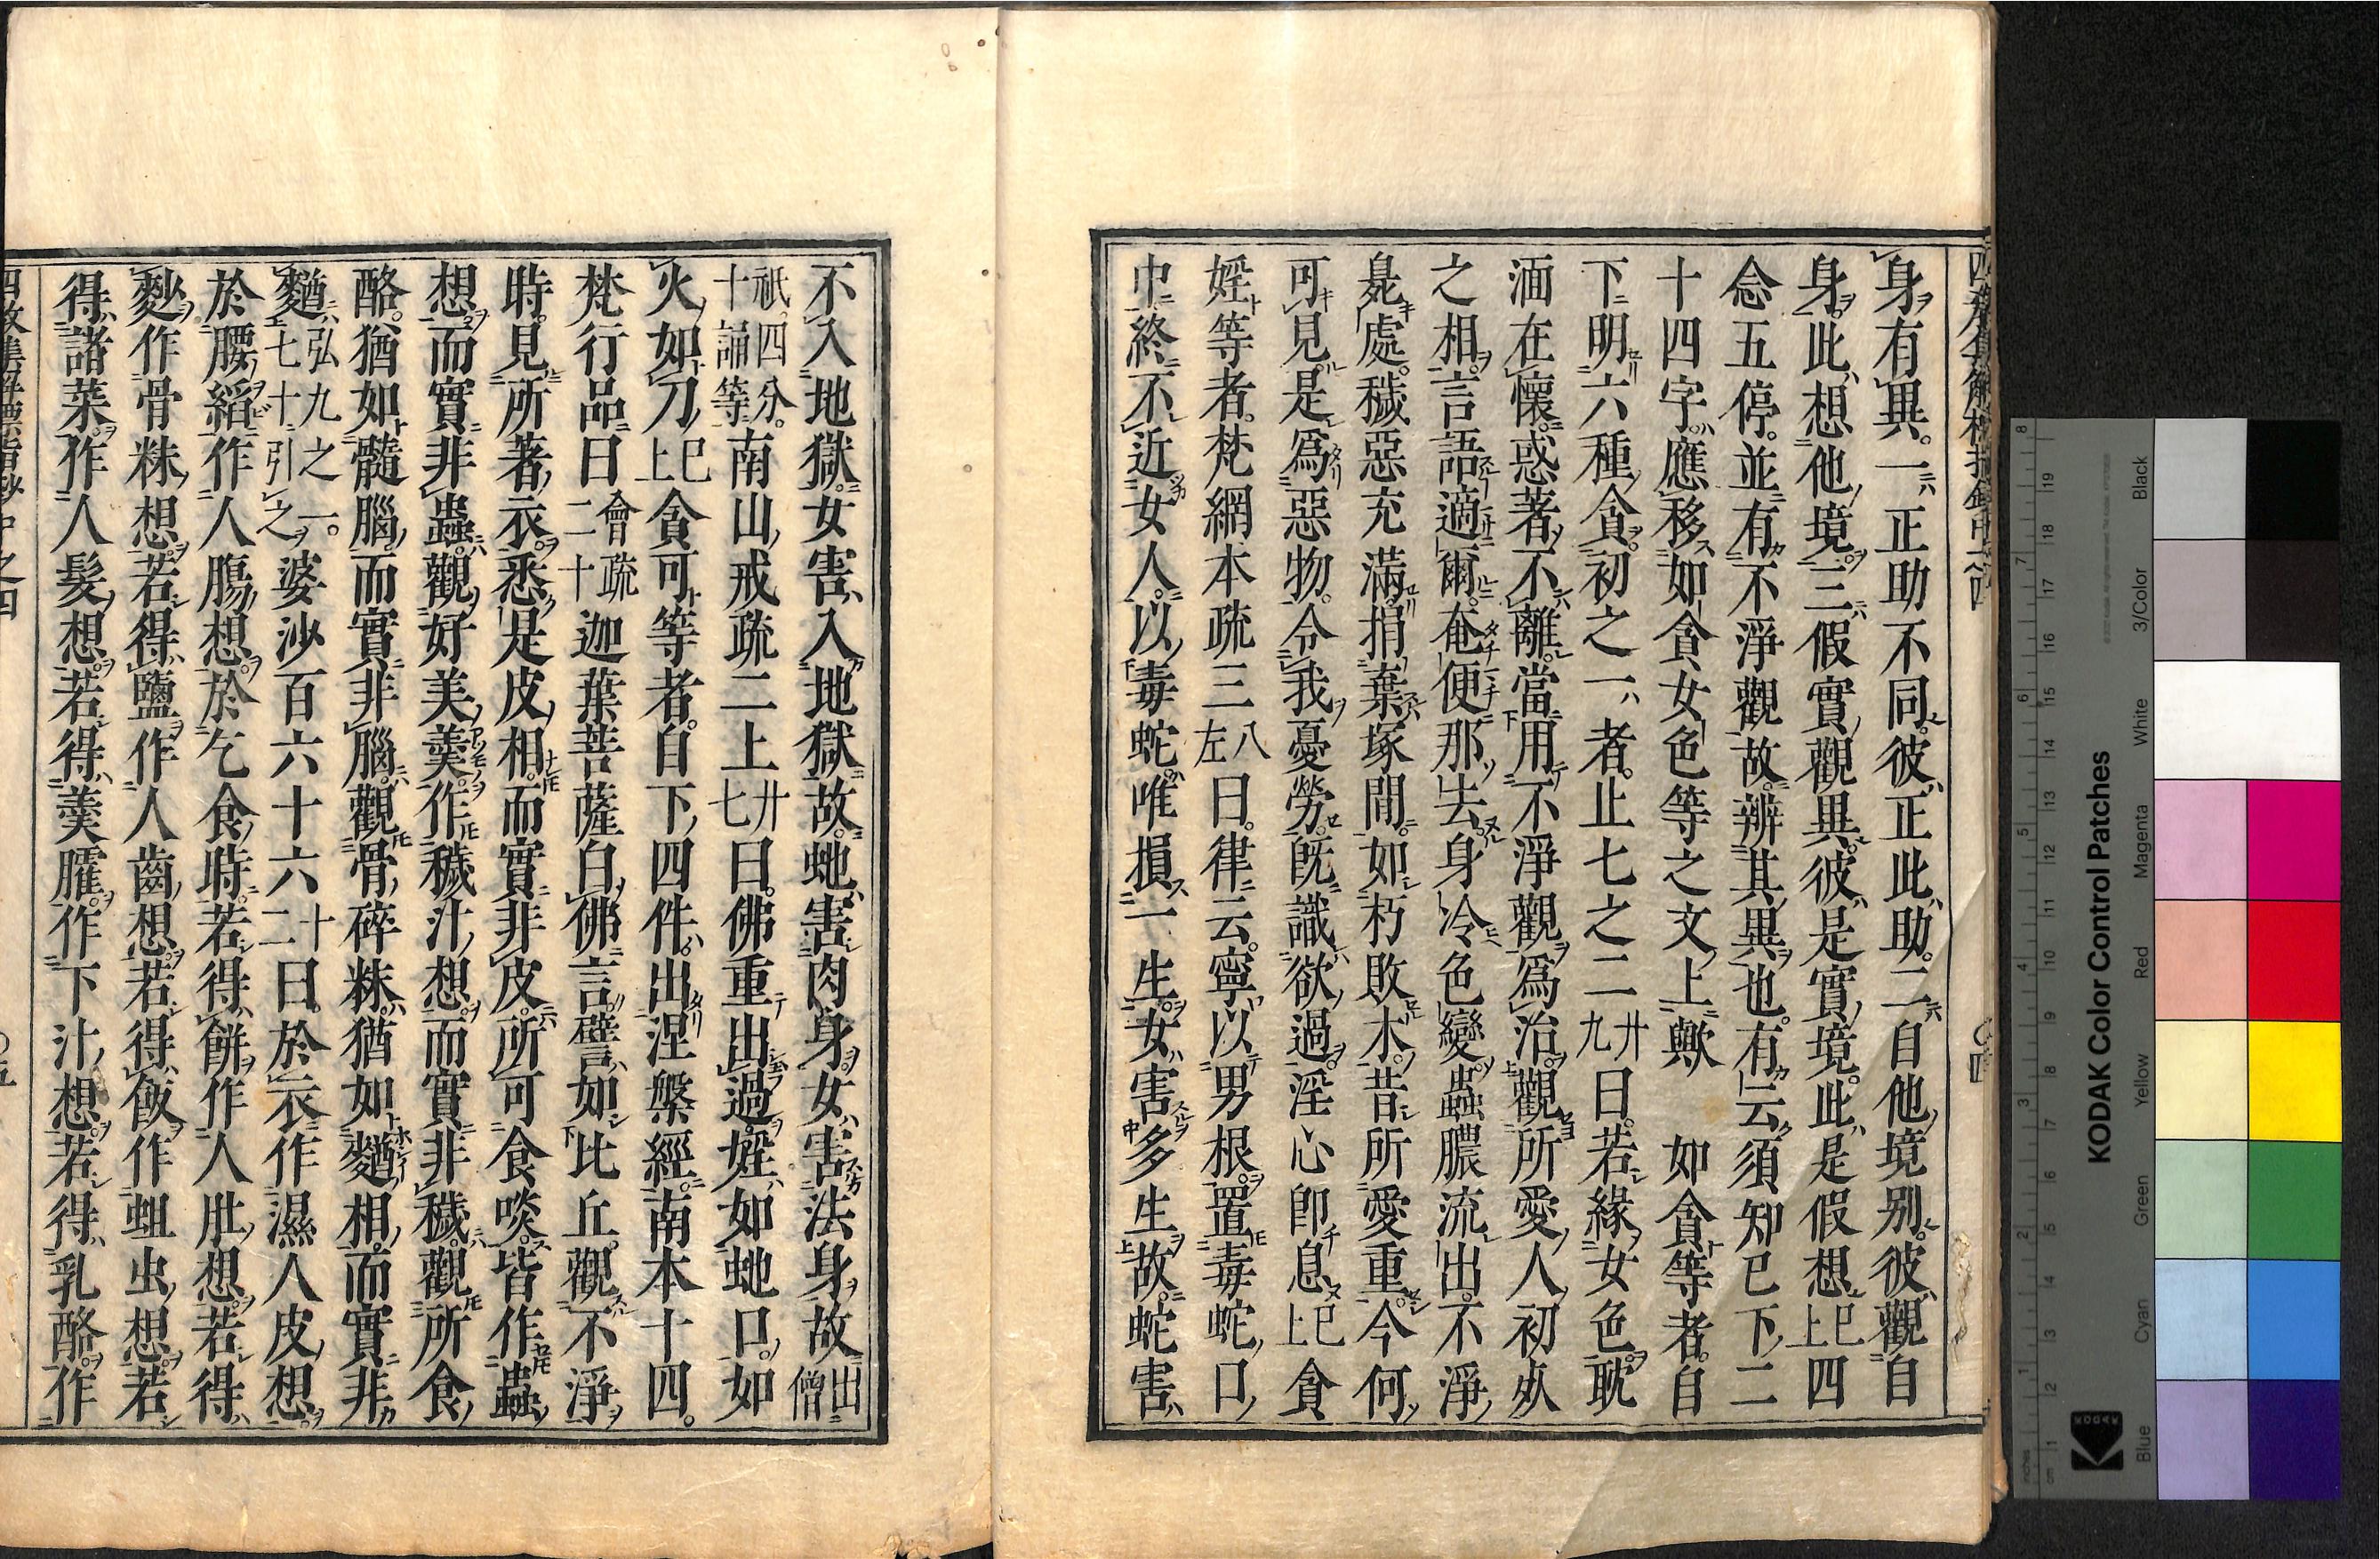 身有異一正助不同彼正此助二自他境別彼觀自
身此想他境三假實觀異彼是實境此是假想已上四
念五停並有不淨觀故辨其異也有云須知已下二
十四字應移如貪女色等之文上歟　如貪等者自
下明六種貪初之一者止七之二廿九曰若緣女色耽
湎在懷惑著不離當用不淨觀為治觀所愛人初死
之相言語適爾奄便那去身冷色變蟲膿流出不淨
臭處穢惡充滿捐棄塚間如朽敗木昔所愛重今何
可見是為惡物令我憂勞既識欲過淫心即息已上貪
婬等者梵網本疏三八左曰律云寧以男根置毒蛇口
中終不近女人以毒蛇唯損一生女害多生故蛇害
不入地獄女害入地獄故虵害肉身女害法身故出僧
祇四分十誦等南山戒疏二上廿七曰佛重出過婬如虵口如
火如刀已上貪可等者自下四件出涅槃經南本十四
梵行品曰會疏二十迦葉菩薩白佛言譬如比丘觀不淨
時見所著衣悉是皮相而實非皮所可食啖皆作蟲
想而實非蟲觀好美羹作穢汁想而實非穢觀所食
酪猶如髓腦而實非腦觀骨碎粖猶如麨相而實非
麨弘九之一七十引之婆沙百六十六十二曰於衣作濕人皮想
於腰縚作人腸想於乞食時若得餅作人肚想若得
麨作骨粖想若得鹽作人齒想若得飯作蛆虫想若
得諸菜作人髮想若得羹臛作下汁想若得乳酪作
KODAK Color Control Patches
Blue Cyan Green Yellow Red Magenta White 3/Color Black